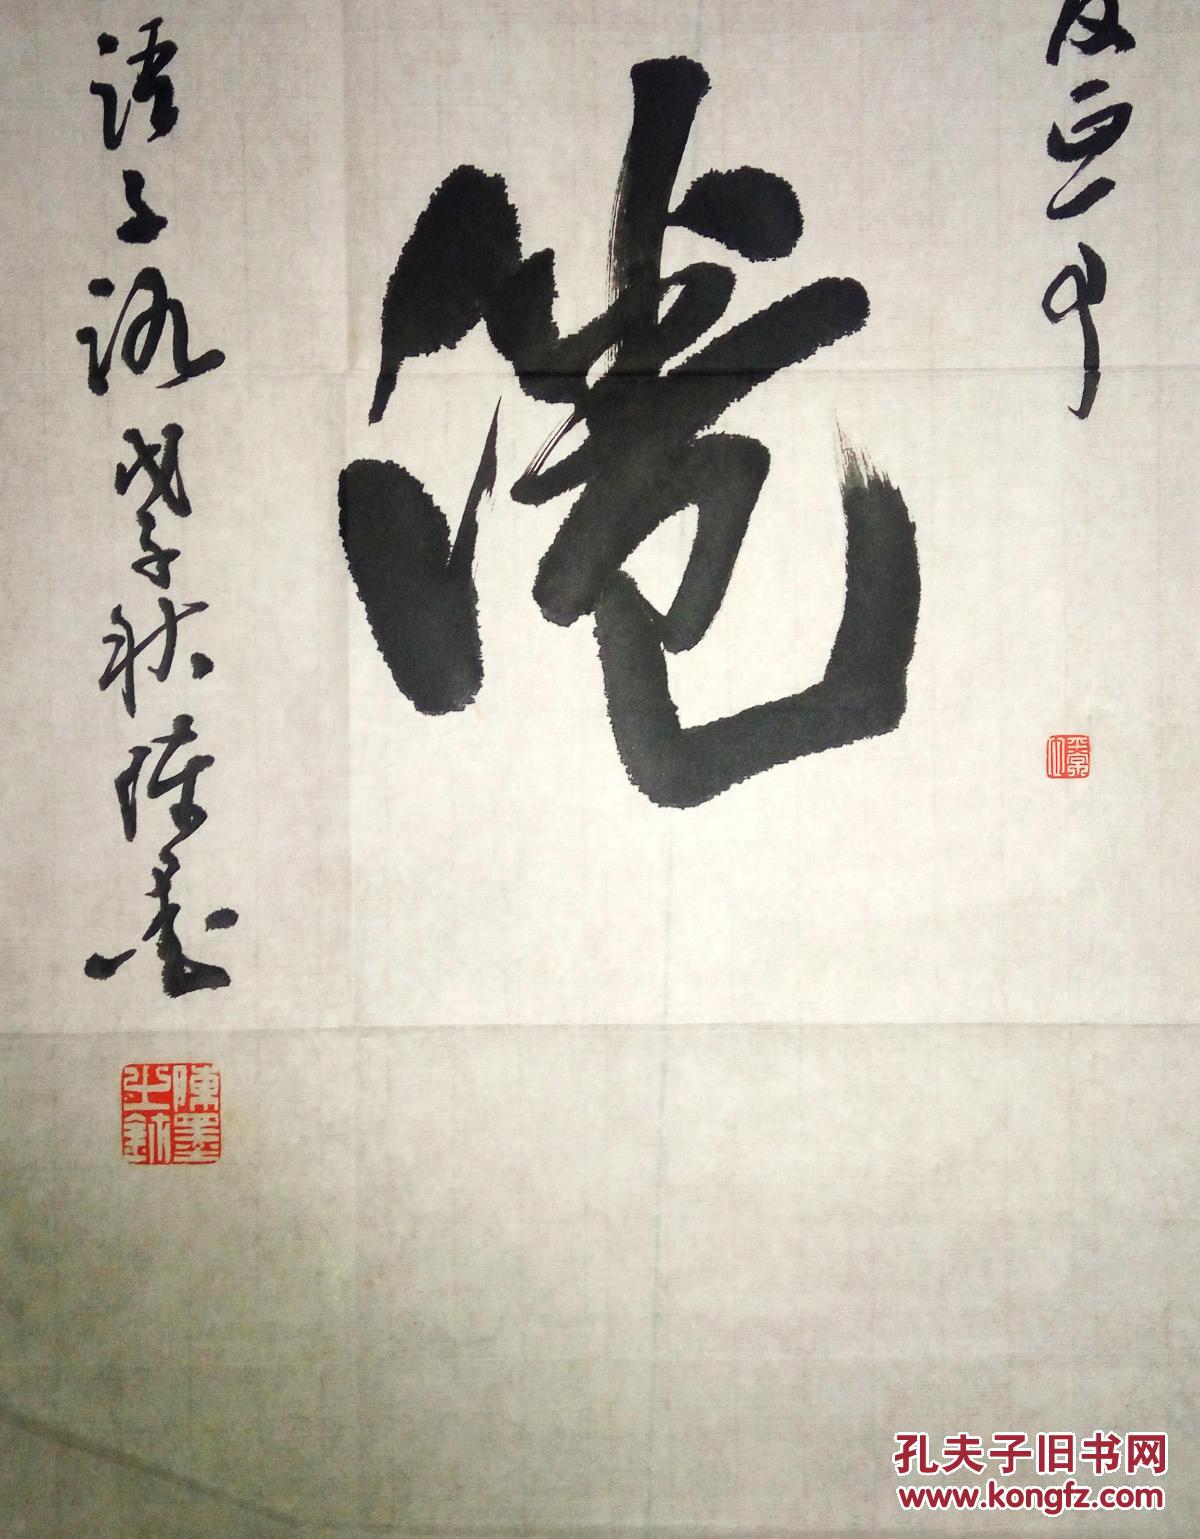 倦
語子路 戊子秋 陳墨
陳墨之鉨
孔夫子旧书网
www.kongfz.com